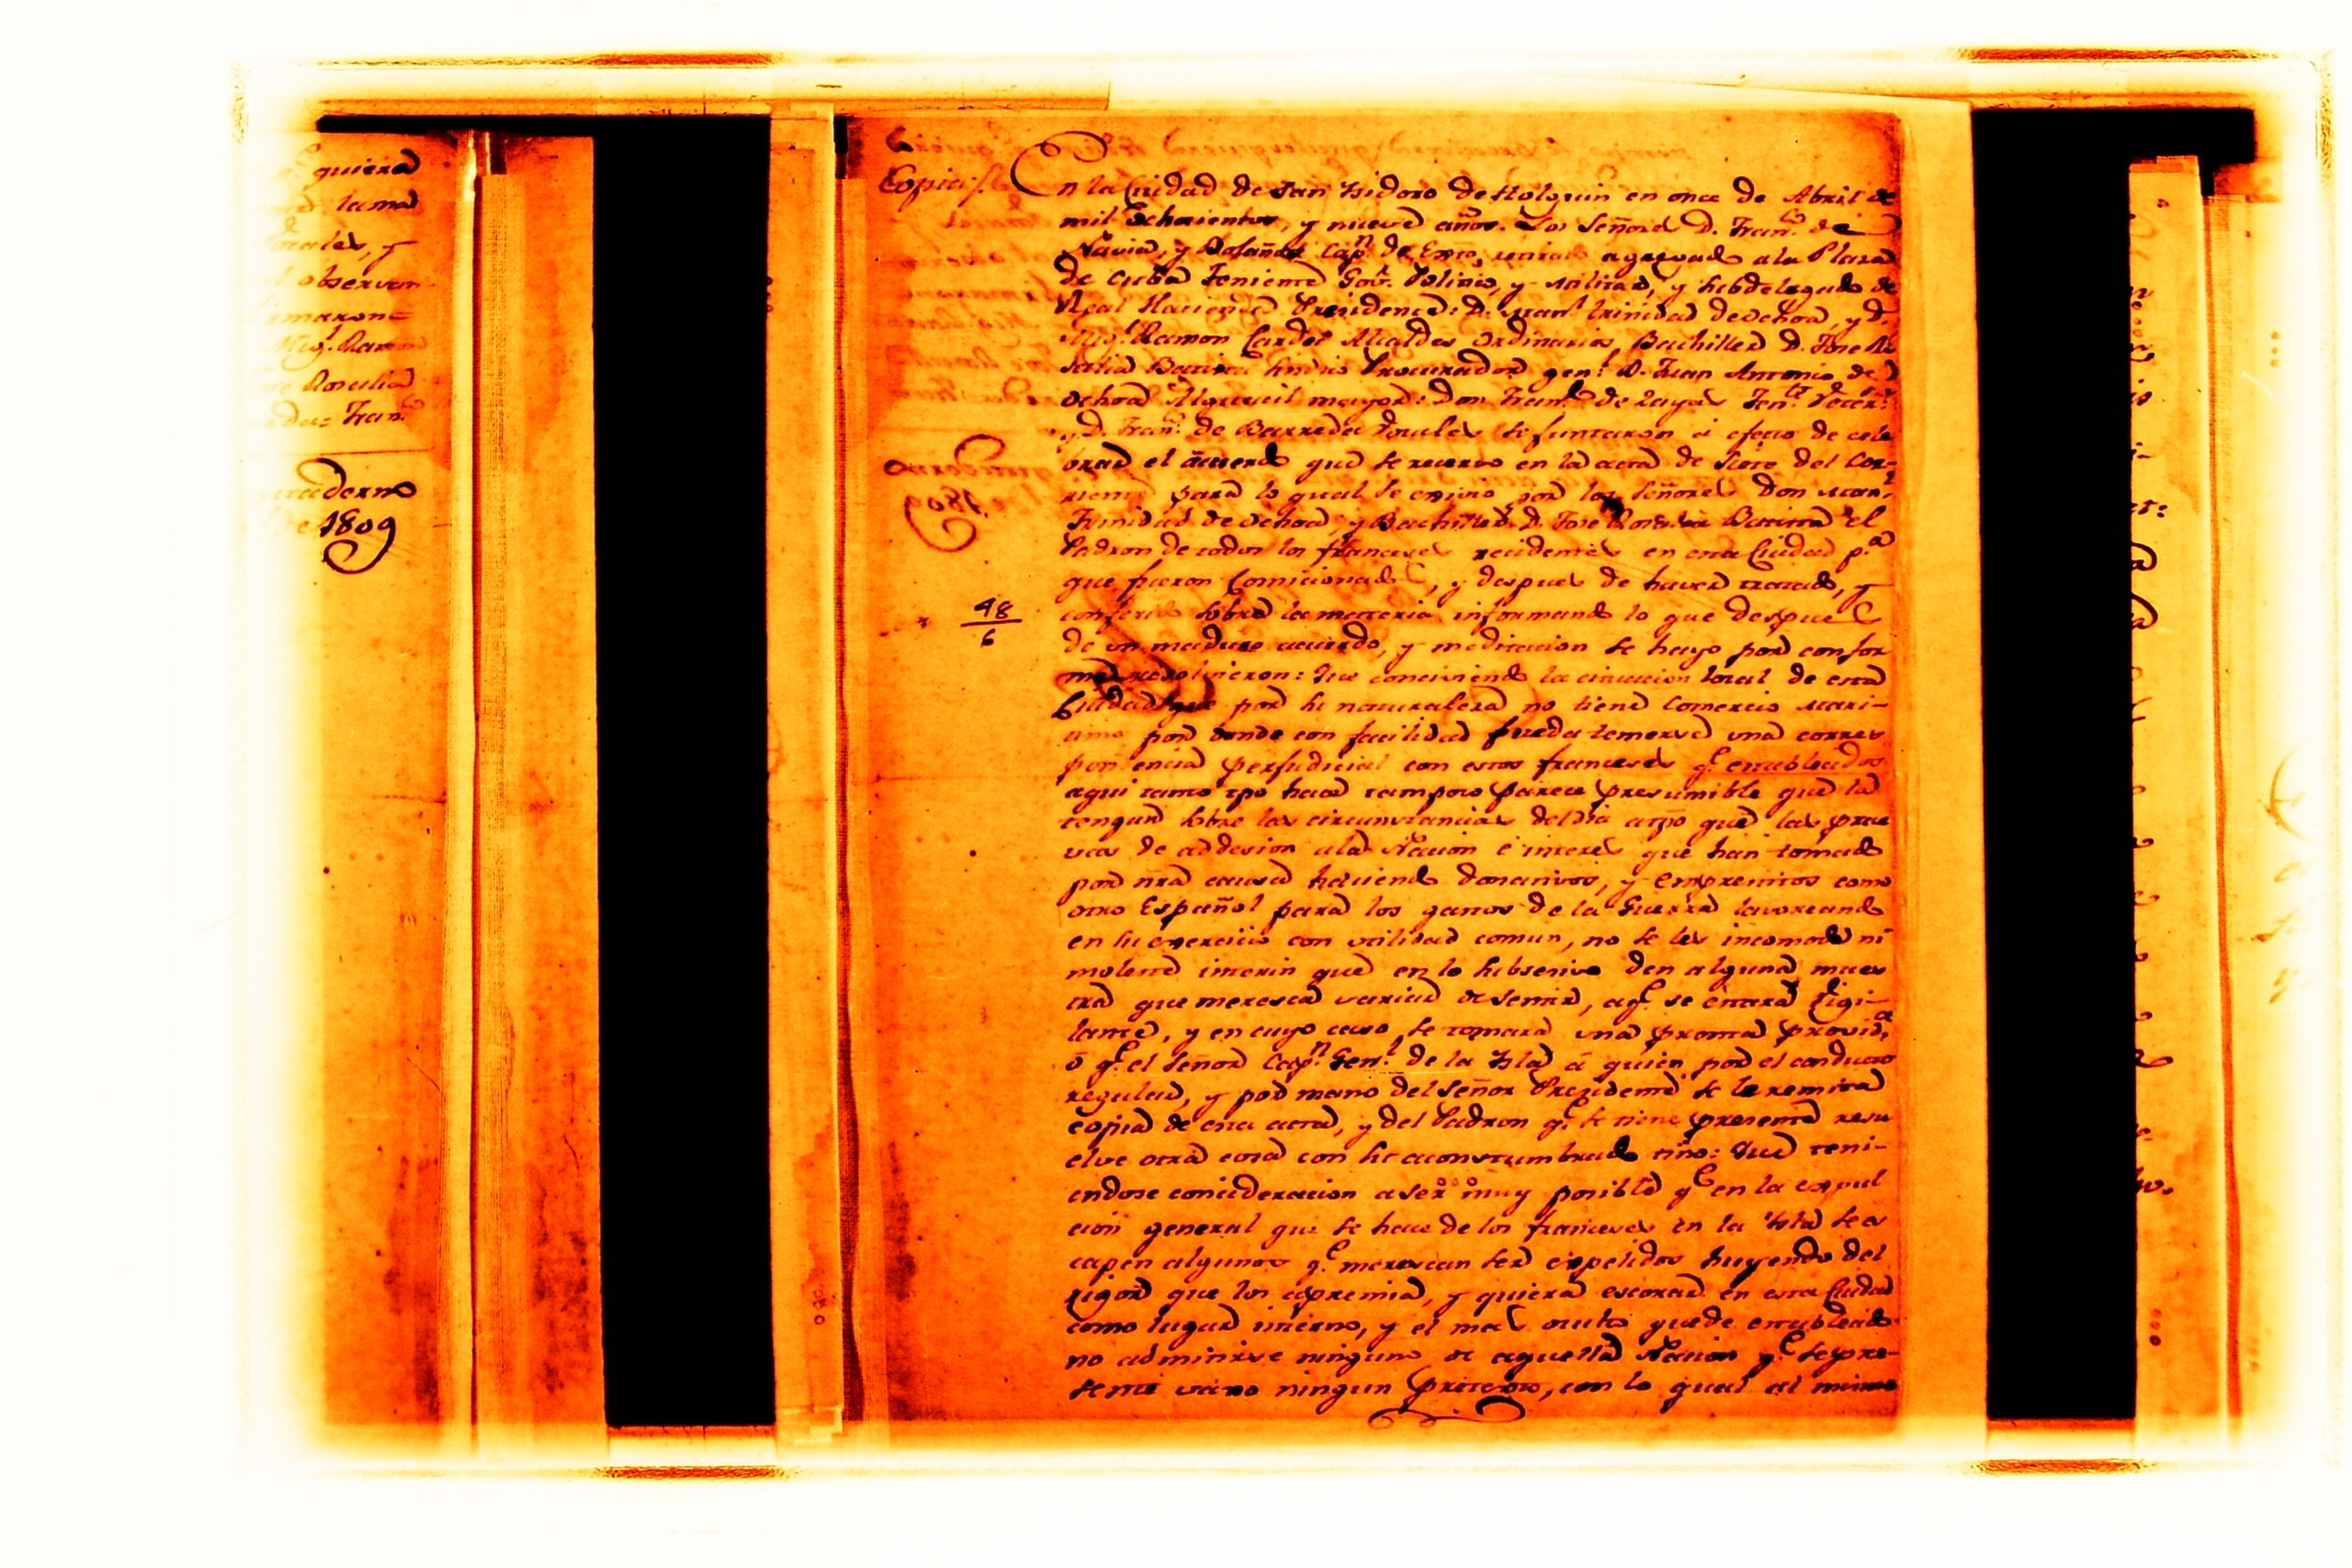 quiera
lama
rales, y
observan
imaron=
Mig.l Ramon
Rosalia
Fran.co
quaderno
de 1809
Copia
En la Ciudad de San Ysidoro de Holguin en once de Abril de
mil Ochocientos, y nueve años. Los Señores D. Fran.co de
Navia, y Bolaños Cap.n de Exto, retirado agregado a la Plaza
de Cuba Teniente Gov.r Politico, y Militar, y subdelegado de
Real Hacienda Presidente: D. Man.l Trinidad de Ochoa, y D.
Mig.l Ramon Cardet Alcaldes Ordinarios Bachiller D. Jose Ro
salia Batista Sindico Procurador gen.l D. Juan Antonio de
Ochoa Alguacil mayor: Don Fran.co de Zayas Ten.te
y D. Fran.co de Barreda Vocales se juntaron á efecto de cele
brar el acuerdo que se reservó en la acta de siete del Cor-
riente para lo qual se exivio por los Señores Don Man.l
Trinidad de Ochoa, y Bachiller D. Jose Rosalia Batista el
Padron de todos los franceses recidentes en esta Ciudad p.a
que fueron Comicionados, y despues de haver tratado, y
conferido sobre la materia informando lo que despues
48
6
de un maduro acuerdo, y meditacion se hayo por confor
me resolvieron: Que conciviendo la cituacion local de esta
Ciudad que por su naturaleza no tiene Comercio Mari-
timo por donde con facilidad pueda temerse una corres
pondencia perjudicial con estos franceses q.e establecidos
aqui tanto tpo hace tampoco parece presumible que la
tengan sobre las circunstancias del dia atpo que las prue
vas de addesion a la Nacion é interes que han tomado
por nra causa haciendo donativos, y Emprestitos como
otro Español para los gastos de la Guerra lavoreando
en su exercicio con utilidad comun, no se les incomode ni
moleste interin que en lo subsesivo den alguna mues
tra que meresca variar de sentir, aq.e se estará Vigi-
lante, y en cuyo caso se tomará una pronta provid.a
ó q.e el Señor Cap.n Gen.l de la Ysla á quien por el conducto
regular, y por mano del Señor Precidente se le remita
copia de esta acta, y del Padron q.e se tiene presente resu
elve otra cosa con su acostumbrado tino: Que teni-
endose concideracion a ser muy posible q.e en la expul
ción general que se hace de los franceses en la Ysla se es
capen algunos q.e merescan ser expelidos huyendo del
rigor que los apremia, y quiera escorar en esta Ciudad
como lugar interno, y el mas oculto quede establecido
no admitirse ninguno de aquella Nacion q.e se pre-
sente vaxo ningun pretexto, con lo qual al mismo